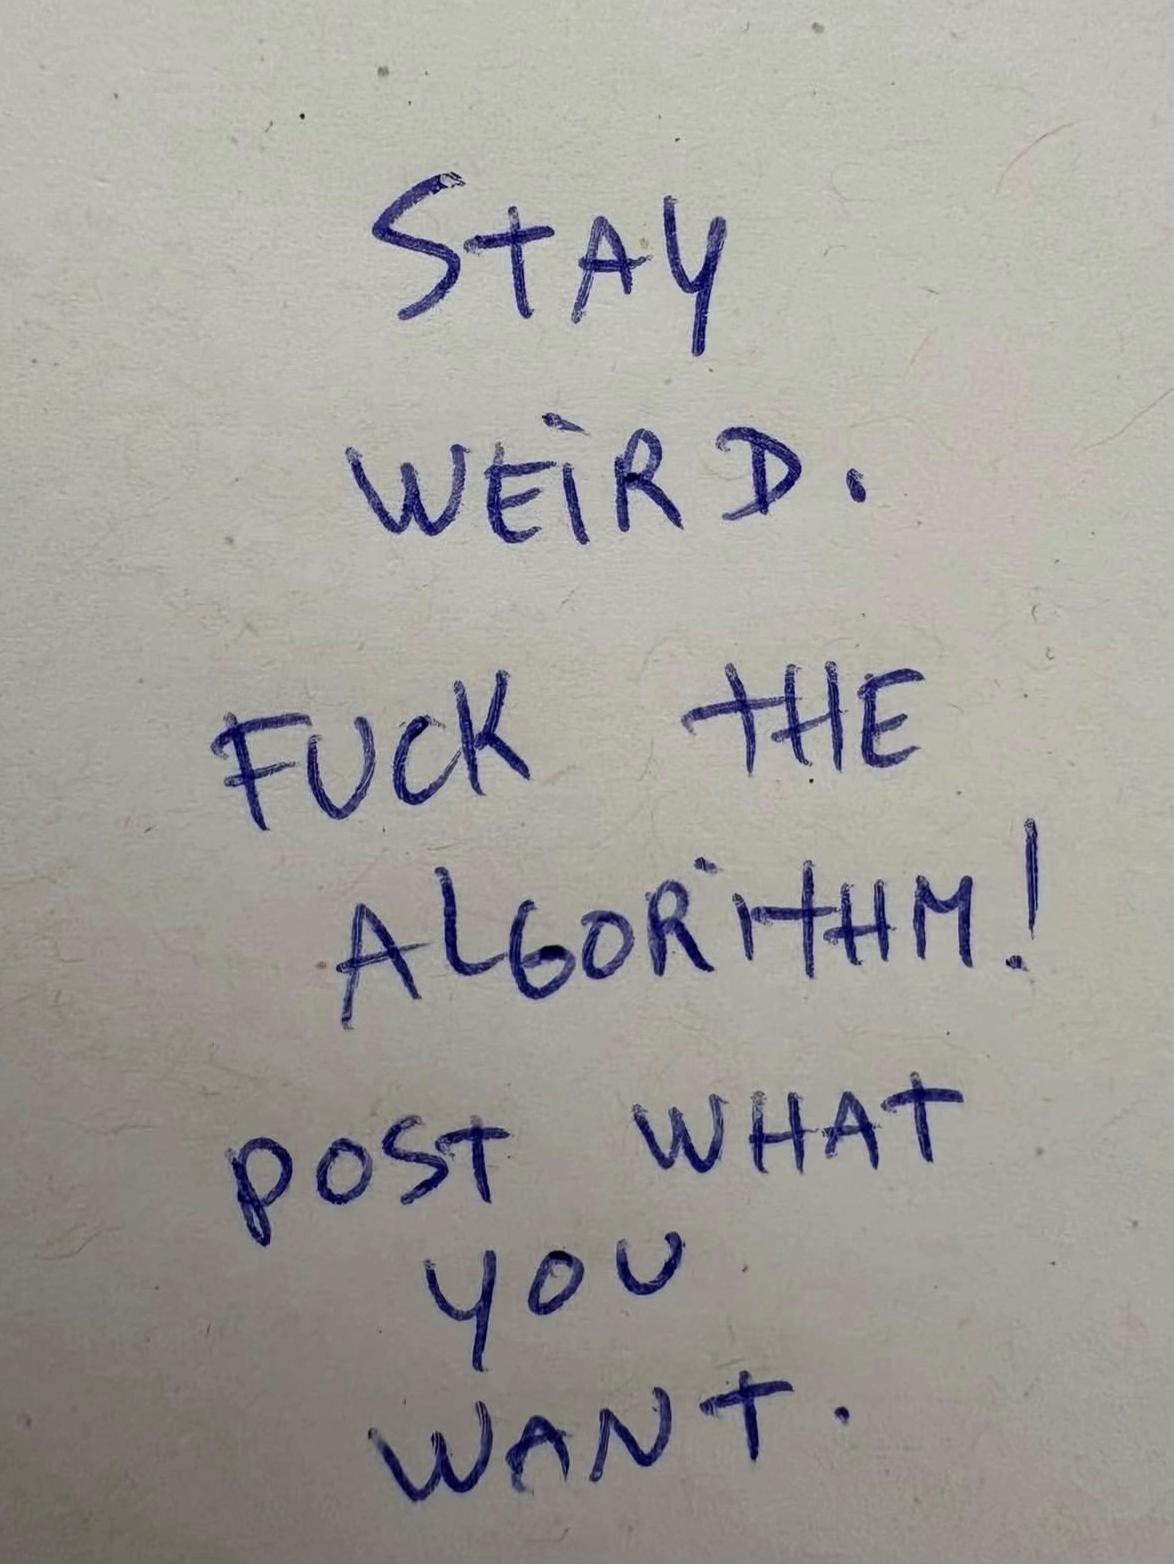 STAY
WEiRD.
FUCK THE
ALGORiTHM!
POST WHAT
YOU
WANT.